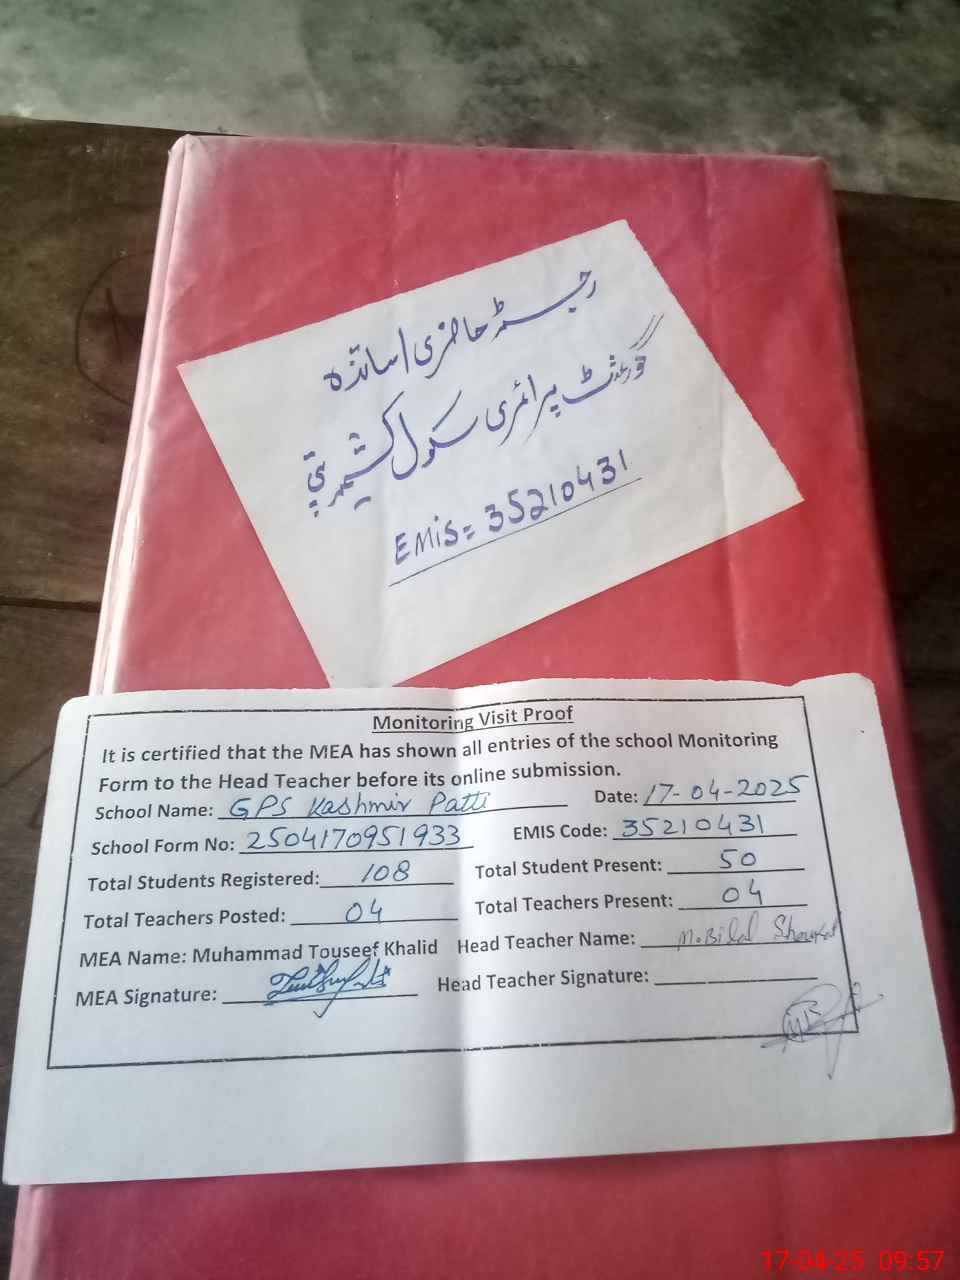 رجسٹر حاضری اساتذہ
گورنمنٹ پرائمری سکول کشمیر پتی
EMiS = 35210431
Monitoring Visit Proof
It is certified that the MEA has shown all entries of the school Monitoring
Form to the Head Teacher before its online submission.
School Name: GPS Kashmir Patti Date: 17-04-2025
School Form No: 2504170951933 EMIS Code: 35210431
Total Students Registered: 108 Total Student Present: 50
Total Teachers Posted: 04 Total Teachers Present: 04
MEA Name: Muhammad Touseef Khalid Head Teacher Name: M.Bilal Shoukat
MEA Signature: Head Teacher Signature:
17-04-25 09:57